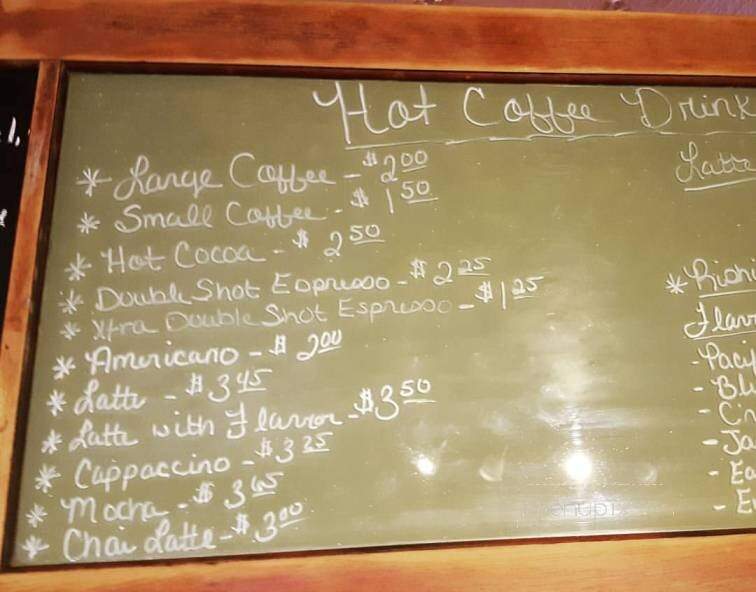 Hot Coffee Drink
* Large Coffee - $2.00
* Small Coffee - $1.50
* Hot Cocoa - $2.50
* Double Shot Espresso - $2.25
* Xtra Double Shot Espresso - $1.25
* Americano - $2.00
* Latte - $3.45
* Latte with Flavor - $3.50
* Cappaccino - $3.25
* Mocha - $3.65
* Chai Latte - $3.00
Latte
* Richi
Flavr
- Paci
- Bl
- Ci
- Ja
- Ea
- E